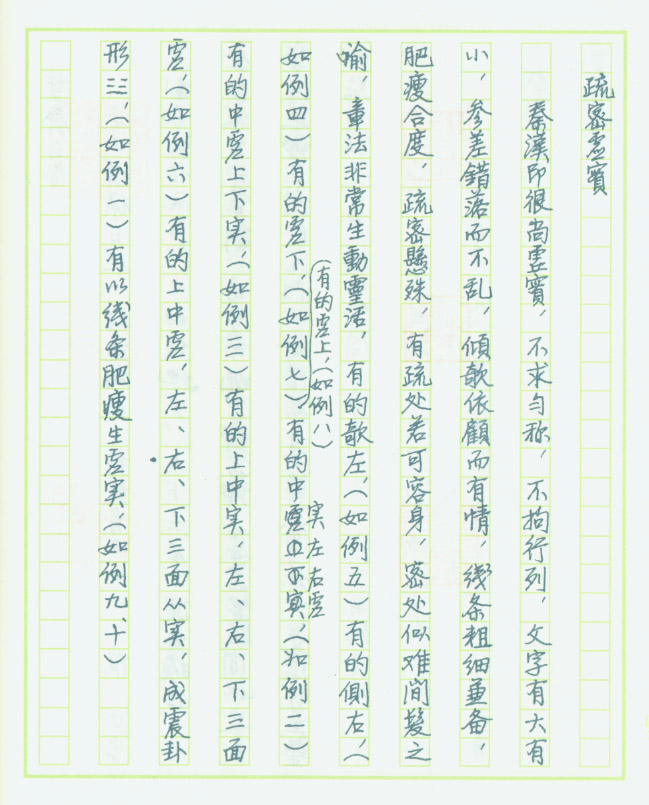 疏密虚實
秦漢印很尚虚實，不求匀称，不拘行列，文字有大有
小，参差錯落而不乱，傾欹依顧而有情，綫条粗细並备，
肥瘦合度，疏密懸殊，有疏处若可容身，密处似难间髮之
喻，章法非常生動靈活，有的欹左，（如例五）有的側右，（
（有的虚上，（如例八）
实左右虚
如例四）有的虚下，（如例七），有的中，（如例二）
有的中虚上下实，（如例三）有的上中实，左、右、下三面
虚，（如例六）有的上中虚，左、右、下三面从实，成震卦
形☳，（如例一）有以线条肥瘦生虚实，（如例九、十）